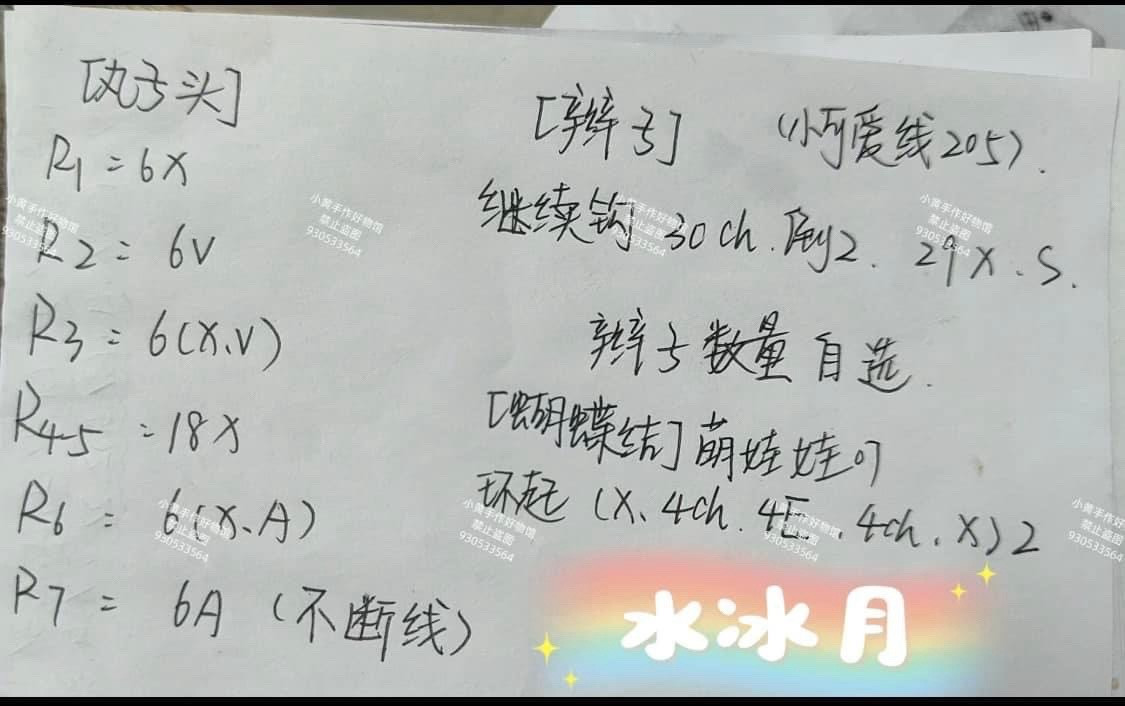 [丸子头]
R1=6X
R2= 6V
R3= 6(X.V)
R4-5 =18X
R6 = 6(X.A)
R7 = 6A (不断线)
[辫子] (小可爱线205).
继续钩 30ch.倒2. 29X.S.
辫子数量自选.
[蝴蝶结]萌娃娃07
环起 (X、4ch.4E.4ch.X)2
水冰月
小黄手作好物馆
禁止盗图
930533564
小黄手作好物馆
禁止盗图
930533564
小黄手作好物馆
禁止盗图
930533564
小黄手作好物馆
禁止盗图
930533564
小黄手作好物馆
禁止盗图
930533564
小黄手作好物馆
禁止盗图
930533564
小黄手作好物馆
禁止盗图
930533564
小黄手作好物馆
禁止盗图
930533564